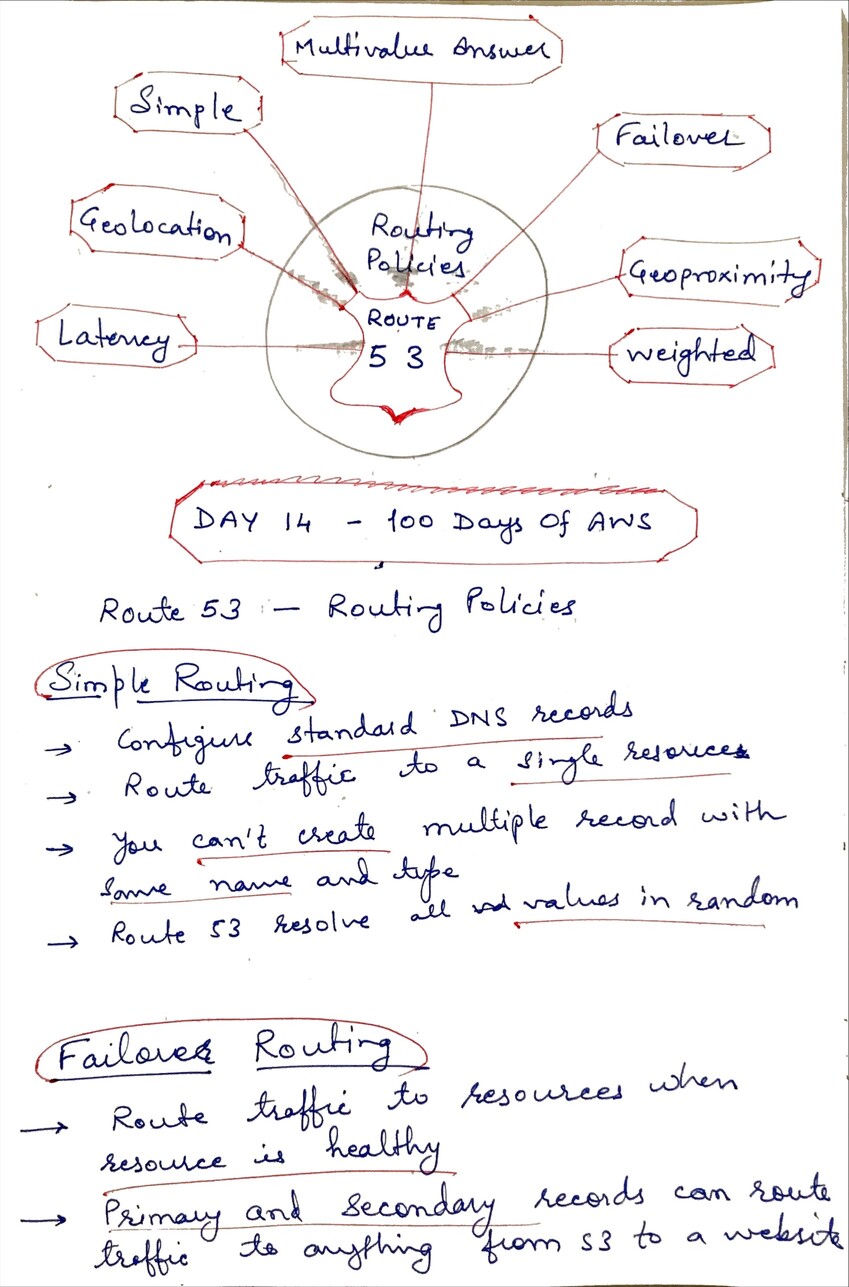 Multivalue Answer
Simple
Failover
Geolocation
Routing
Policies
Geoproximity
Latency
ROUTE
53
Weighted
DAY 14 - 100 Days Of AWS
Route 53 : — Routing Policies
Simple Routing
→ Configure standard DNS records
→ Route traffic to a single resource
→ You can't create multiple record with
same name and type
→ Route 53 resolve all values in random
Failover Routing
→ Route traffic to resources when
resource is healthy
→ Primary and secondary records can route
traffic to anything from S3 to a website